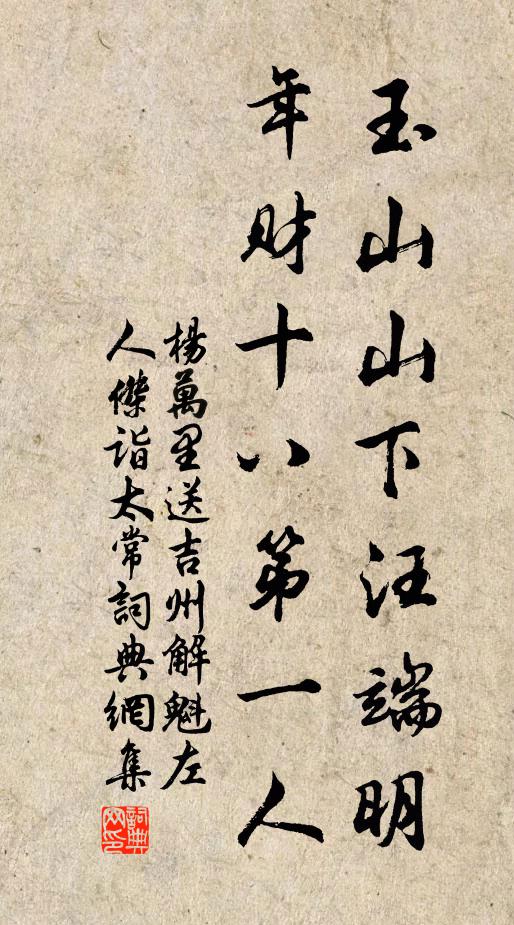 玉山山下汪端明
年财十八第一人
楊萬里送吉州解魁左
人傑詣太常詞典網集
詞典网印